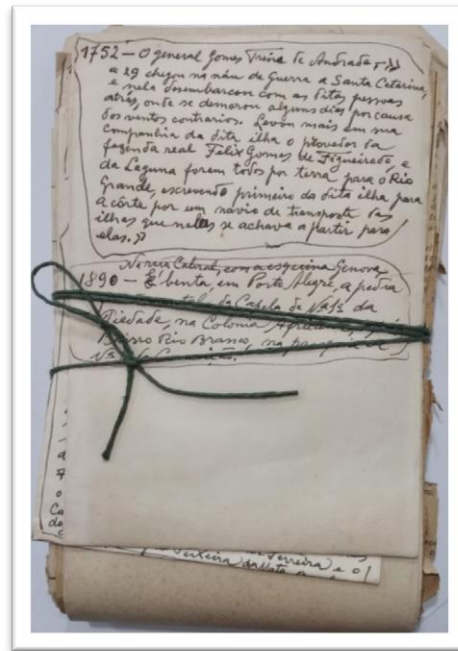 1752 — O general Gomes Freire de Andrade
a 29 chegou na náu de Guerra a Santa Catarina,
e nela desembarcou com as ditas pessoas
atrás, onde se demorou alguns dias por causa
dos ventos contrarios. Levou mais em sua
companhia da dita ilha o provedor da
fazenda real Felix Gomes de Figueiredo, e
da Laguna foram todos por terra para o Rio
Grande, escrevendo primeiro da dita ilha para
a côrte por um navio de transporte das
ilhas que nelas se achava a partir para
elas.»
Na rua Cabral, com a esquina Genova
1890 — É benta, em Porto Alegre, a pedra
da Capela de Nª Sª da
Piedade, na Colonia
Bairro Rio Branco, na
Nª
Ca
de
Ferreira e o
Teixeira da Mata